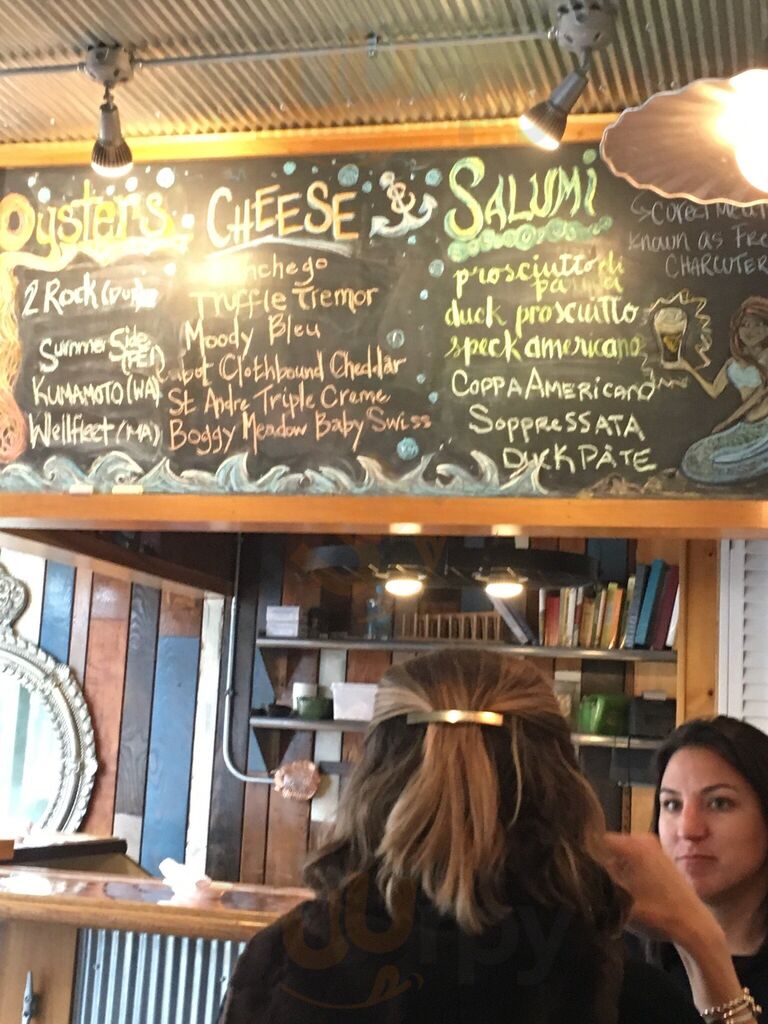 Oysters
2 Rock
Summer Side (PEI)
KUMAMOTO (WA)
Wellfleet (MA)
CHEESE
Truffle Tremor
Moody Bleu
Clothbound Cheddar
St Andre Triple Creme
Boggy Meadow Baby Swiss
SALUMI
prosciutto di
parma
duck proscuitto
speck americano
COPPA AMERICANO
SOPPRESSATA
DUCK PÂTE
known as